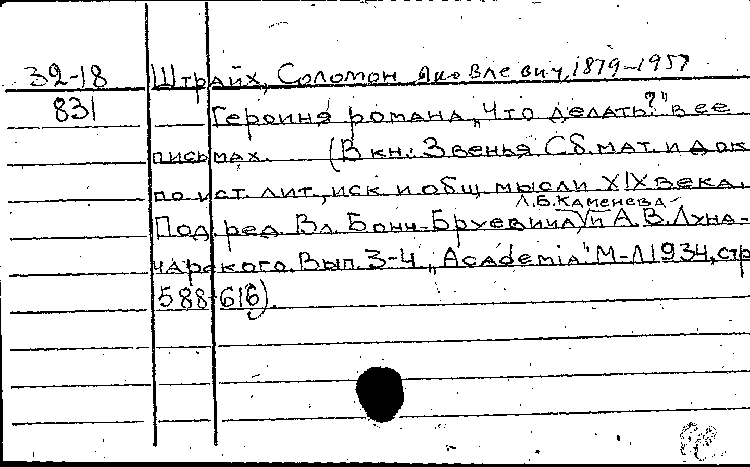 32-18 Штрайх, Соломон Яковлевич, 1879-1957
831 Героиня романа „Что делать?" в ее
письмах. (В кн.: Звенья Сб. мат. и док
по ист. лит., иск. и общ. мысли XIX века.
Л.Б. Каменева
Под ред. Вл. Бонч-Бруевича и А.В. Луна-
чарского. Вып. 3-4 „Academia" М-Л 1934, стр
588-616).